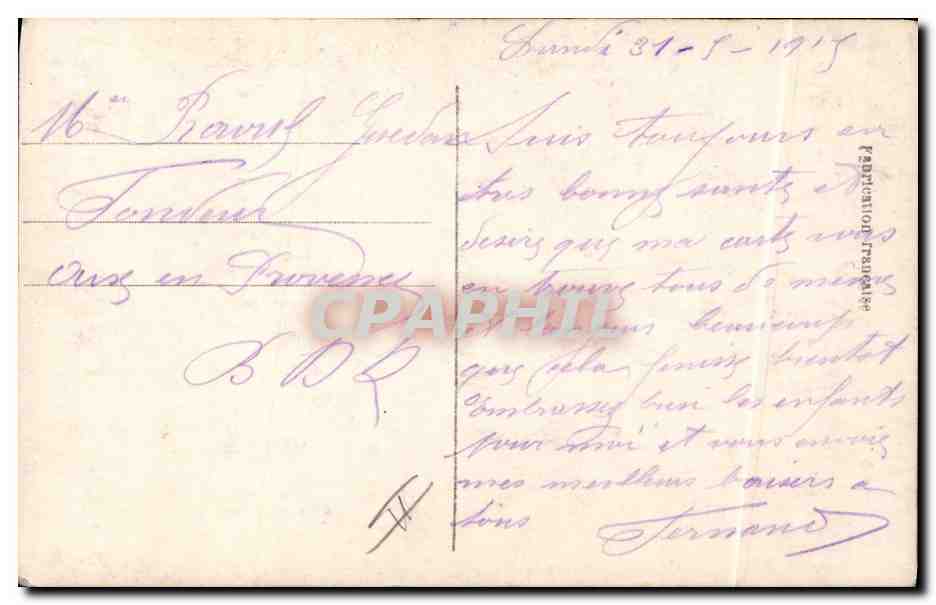 Lundi 31-5-1915
Mr Raoul
Fondeur
Aix en Provence
B D R
Suis toujours en
tres bonne santé et
desire que ma carte vous
en trouve tous de même
beaucoup
que cela finisse bientot
Embrasse bien les enfants
pour moi et vous envoie
mes meilleurs baisers a
tous Fernand
Fabrication française
CPAPHIL